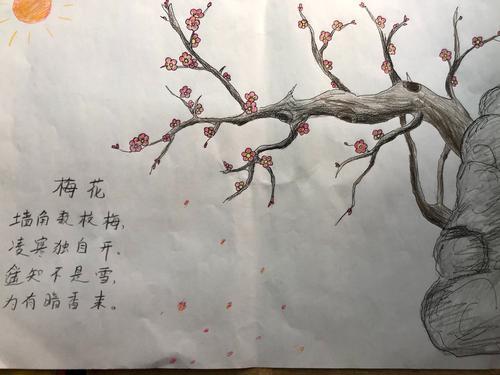 梅花
墙角数枝梅,
凌寒独自开。
遥知不是雪,
为有暗香来。